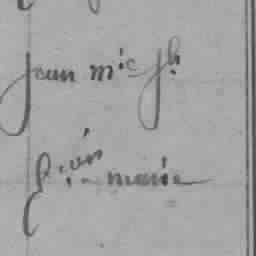 jean mie jh
fois marie